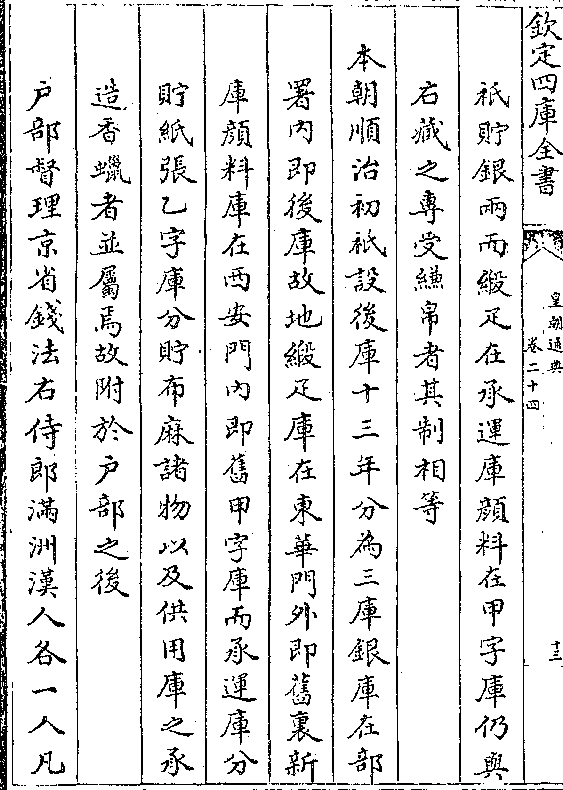 欽定四庫全書
皇朝通典
卷二十四
十三
祇貯銀兩而緞疋在承運庫顔料在甲字庫仍與
右藏之專受縑帛者其制相等
本朝順治初祇設後庫十三年分為三庫銀庫在部
署内即後庫故地緞疋庫在東華門外即舊裏新
庫顔料庫在西安門内即舊甲字庫而承運庫分
貯紙張乙字庫分貯布麻諸物以及供用庫之承
造香蠟者並屬焉故附於户部之後
户部督理京省錢法右侍郎滿洲漢人各一人凡